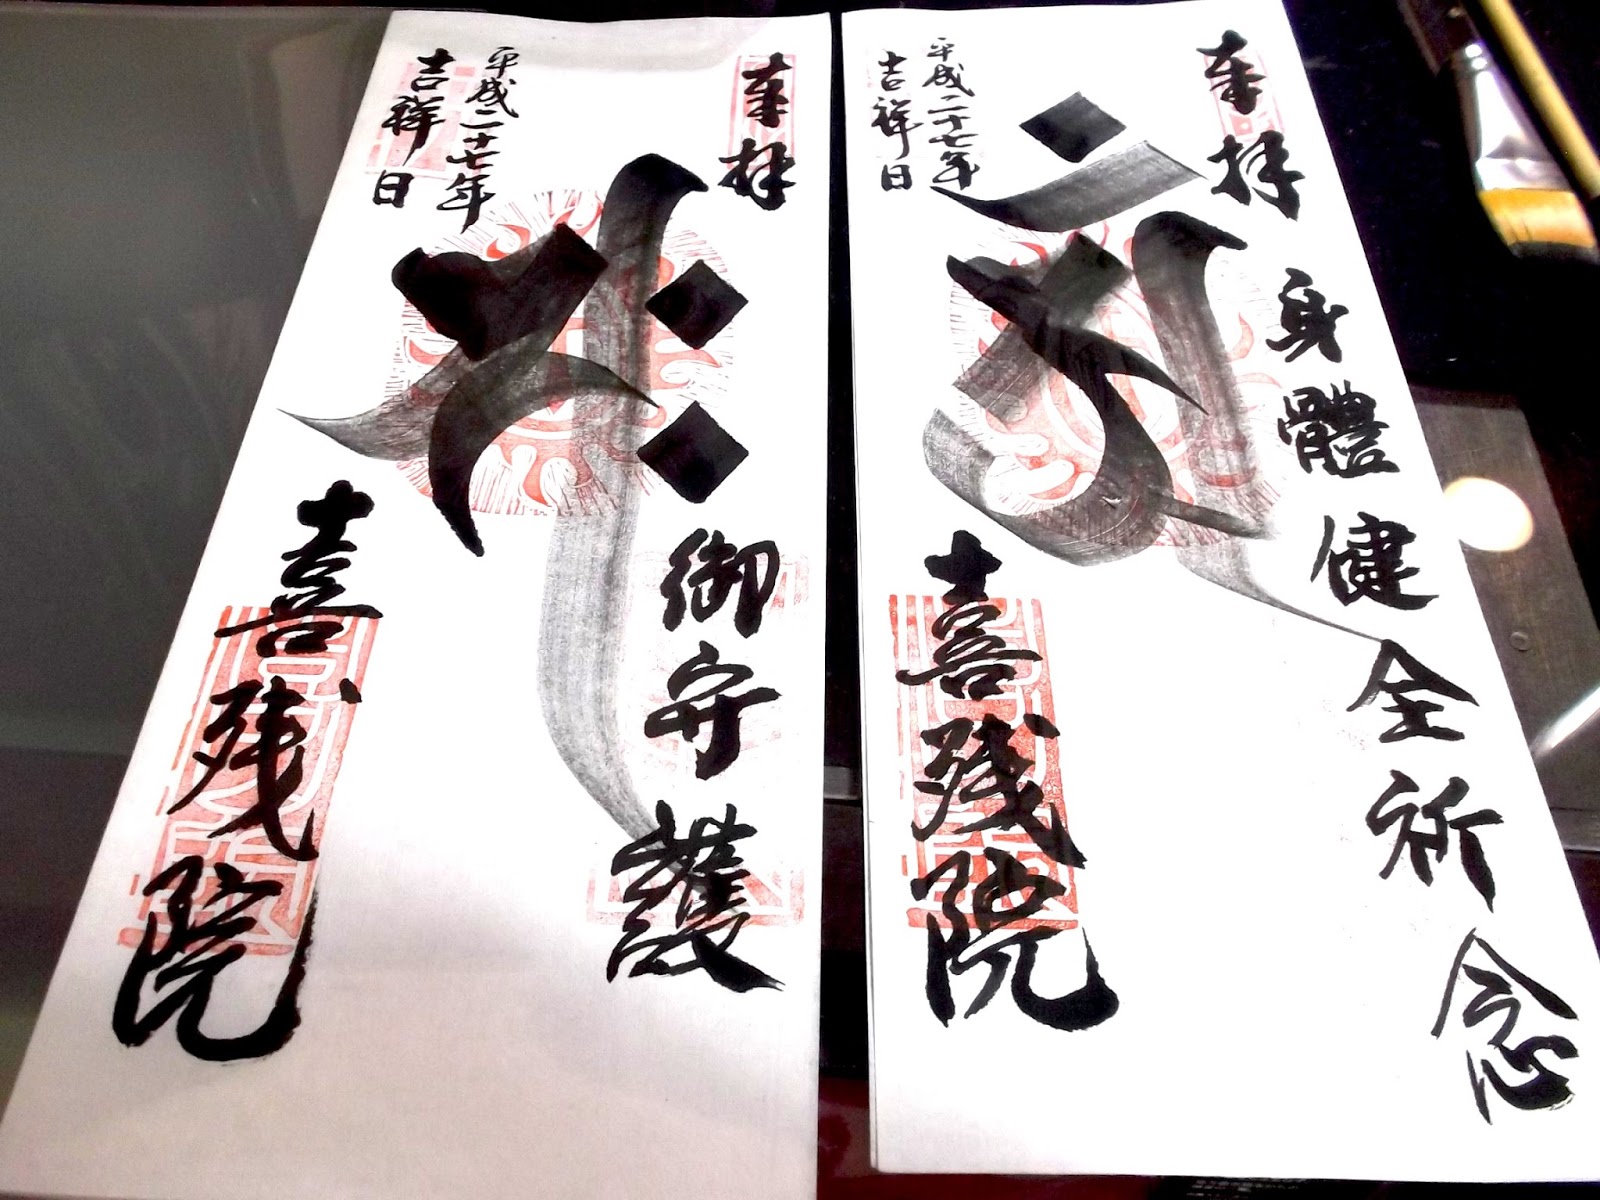 奉拝
御守護
平成二十七年
吉祥日
喜残院
奉拝
身體健全祈念
平成二十七年
吉祥日
喜残院